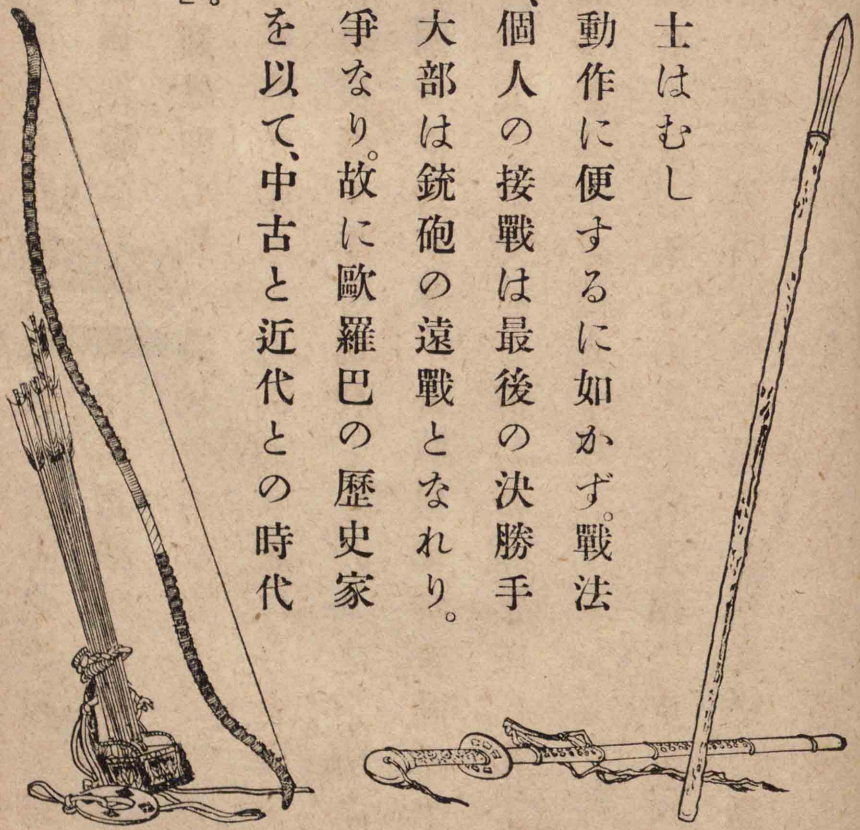 士はむし
動作に便するに如かず。戰法
、個人の接戰は最後の決勝手
大部は銃砲の遠戰となれり。
爭なり。故に歐羅巴の歷史家
を以て、中古と近代との時代
。